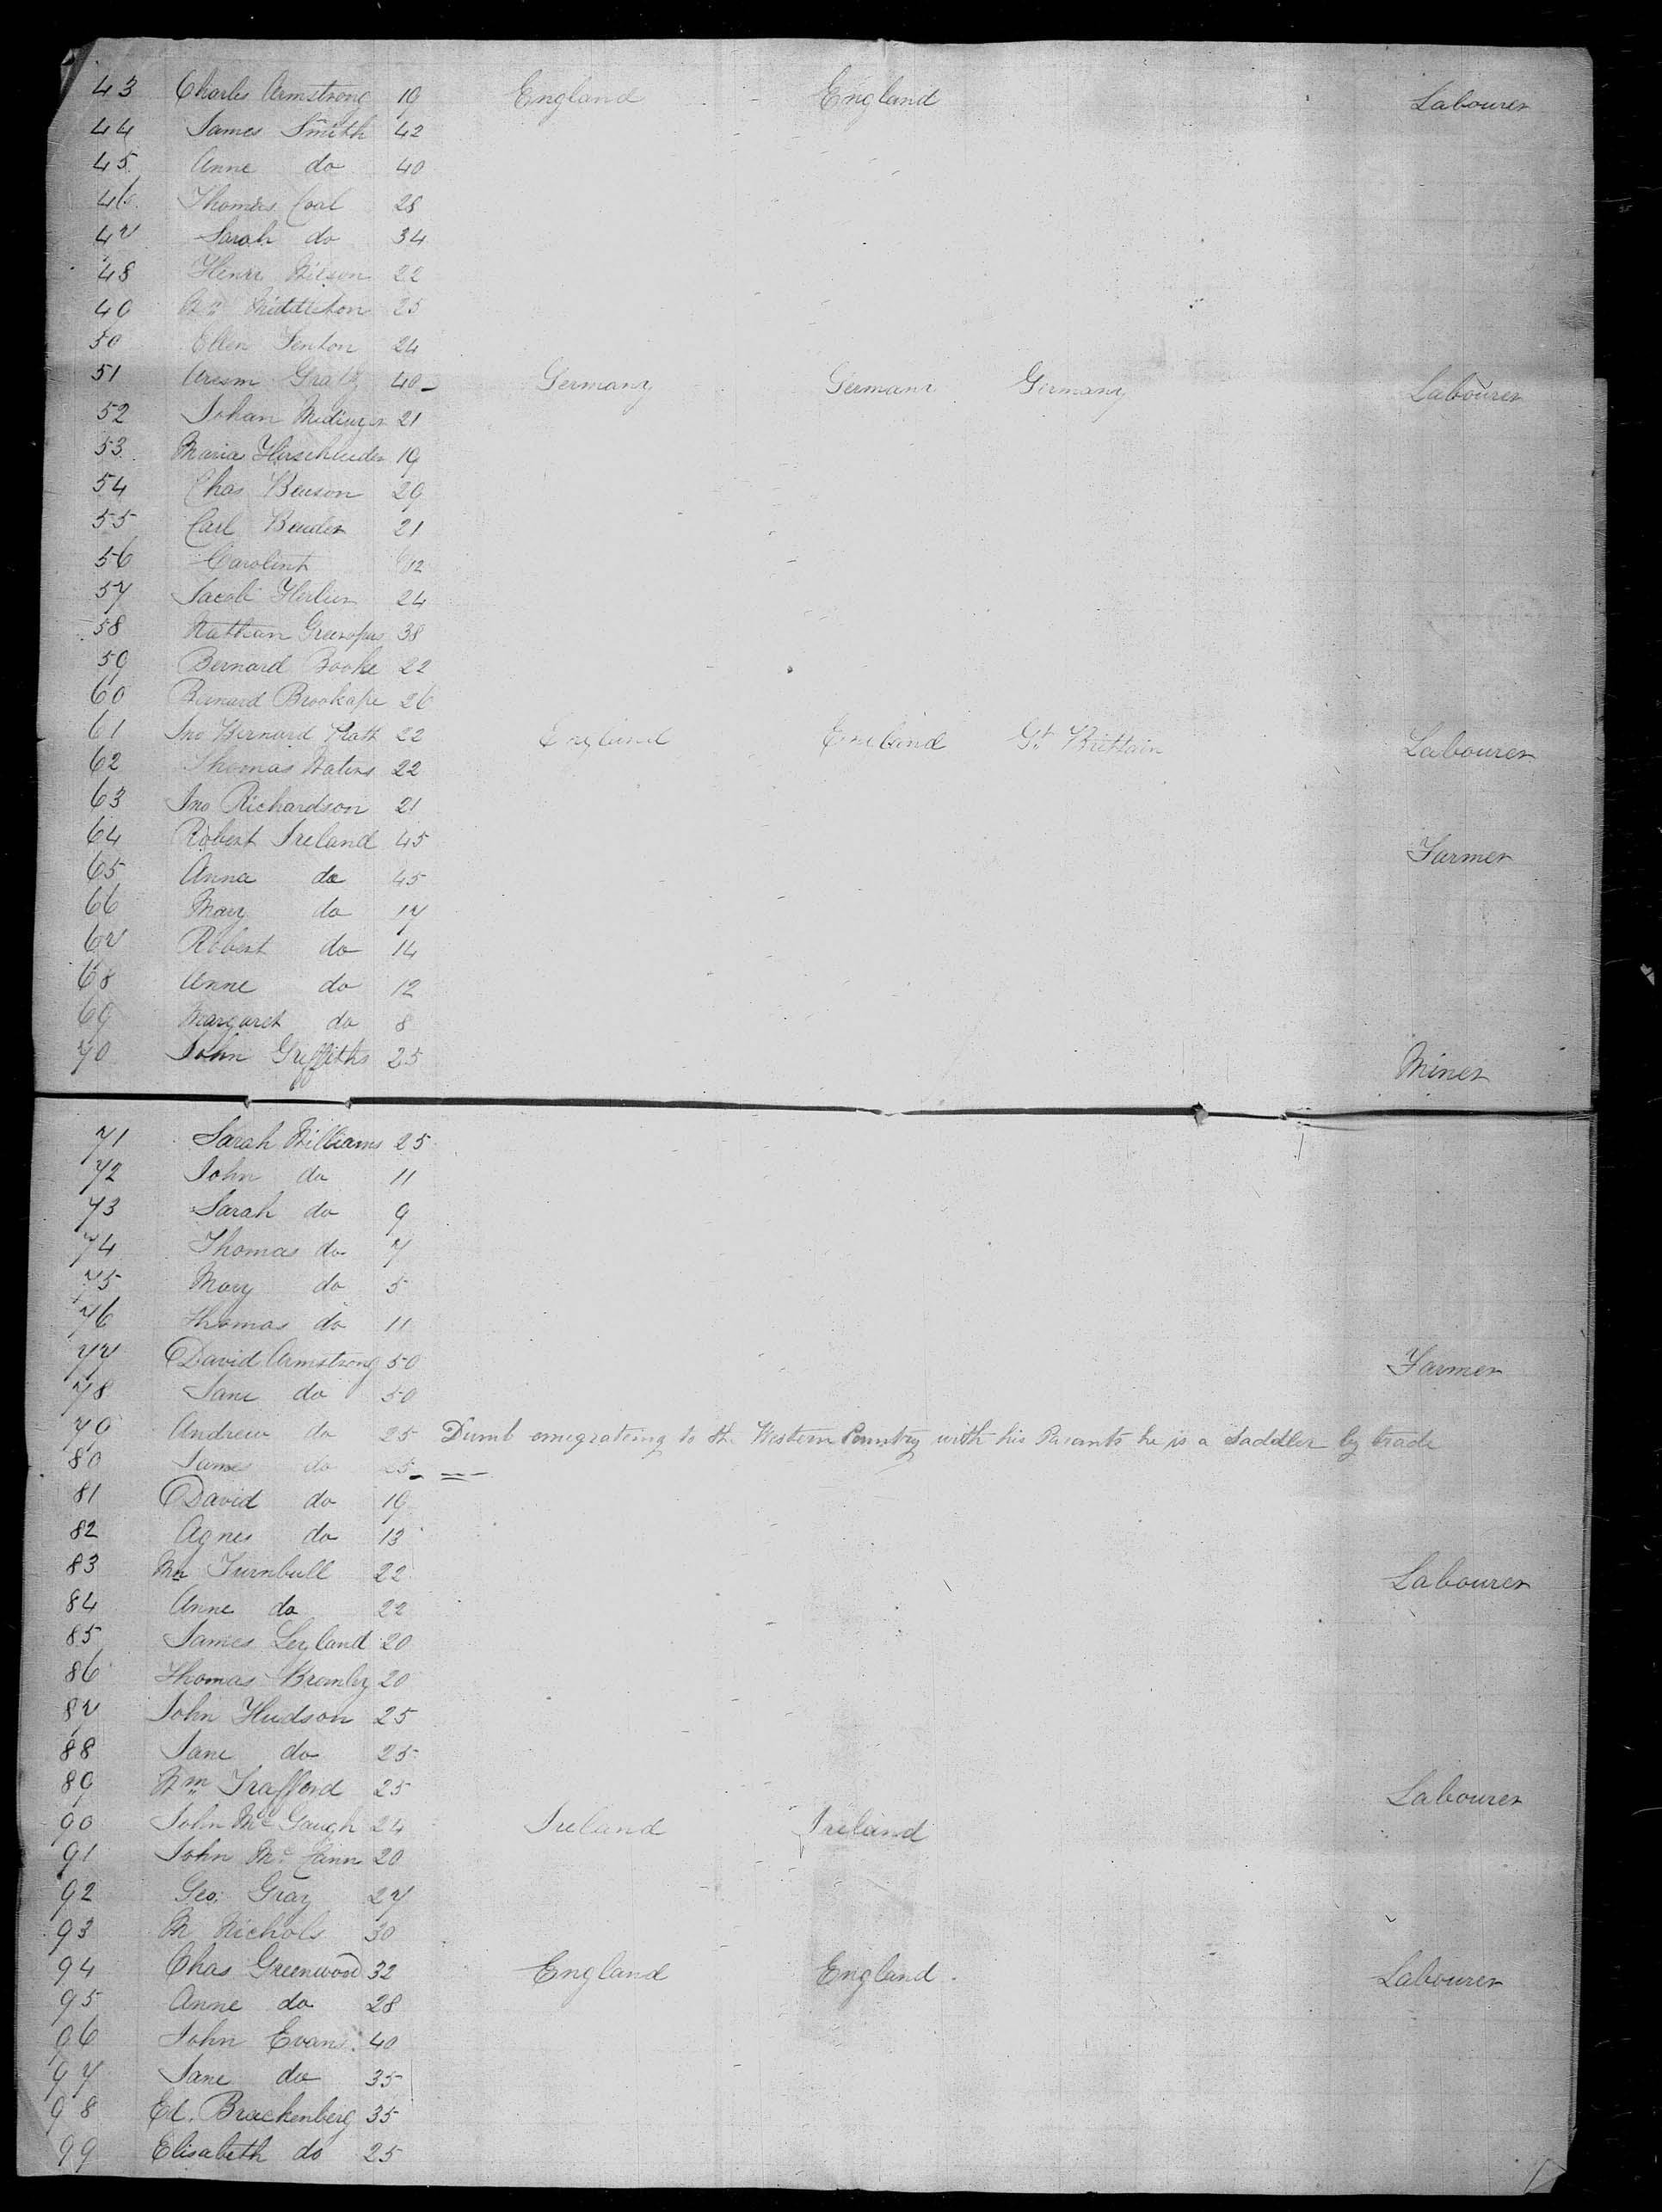 43 Charles Armstrong 19 England England Labourer
44 James Smith 42
45 Anne do 40
46 Thomas Coal 28
47 Sarah do 34
48 Henri Wilson 22
49 Wm Middleton 25
50 Ellen Fenton 24
51 40 Germany Germany Germany Labourer
52 Johan 21
53 Maria 19
54 Chas Beuson 29
55 Carl Bender 21
56 12
57 Jacob 24
58 Nathan 38
59 Bernard Booke 22
60 Bernard 26
61 Jno Bernard 22 England England Gt Brittain Labourer
62 Thomas Waters 22
63 Jno Richardson 21
64 Robert Ireland 45 Farmer
65 Anna do 45
66 Mary do 17
67 Robert do 14
68 Anne do 12
69 Margaret do 8
70 John Griffiths 25 Miner
71 Sarah Williams 25
72 John do 11
73 Sarah do 9
74 Thomas do 7
75 Mary do 5
76 Thomas do 11
77 David Armstrong 50 Farmer
78 Jane do 50
79 Andrew do 25 Dumb emigrating to the Western Country with his Parants he is a Saddler by trade
80 James do 25
81 David do 19
82 Agnes do 13
83 Wm Turnbull 22 Labourer
84 Anne do 22
85 James Leyland 20
86 Thomas Bromley 20
87 John Hudson 25
88 Jane do 25
89 Wm Trafford 25 Labourer
90 John Mc Gough 24 Ireland Ireland
91 John Mc Cann 20
92 Geo. Gray 27
93 M Nichols 30
94 Chas Greenwood 32 England England. Labourer
95 Anne do 28
96 John Evans 40
97 Jane do 35
98 Ed. Brackenberg 35
99 Elisabeth do 25